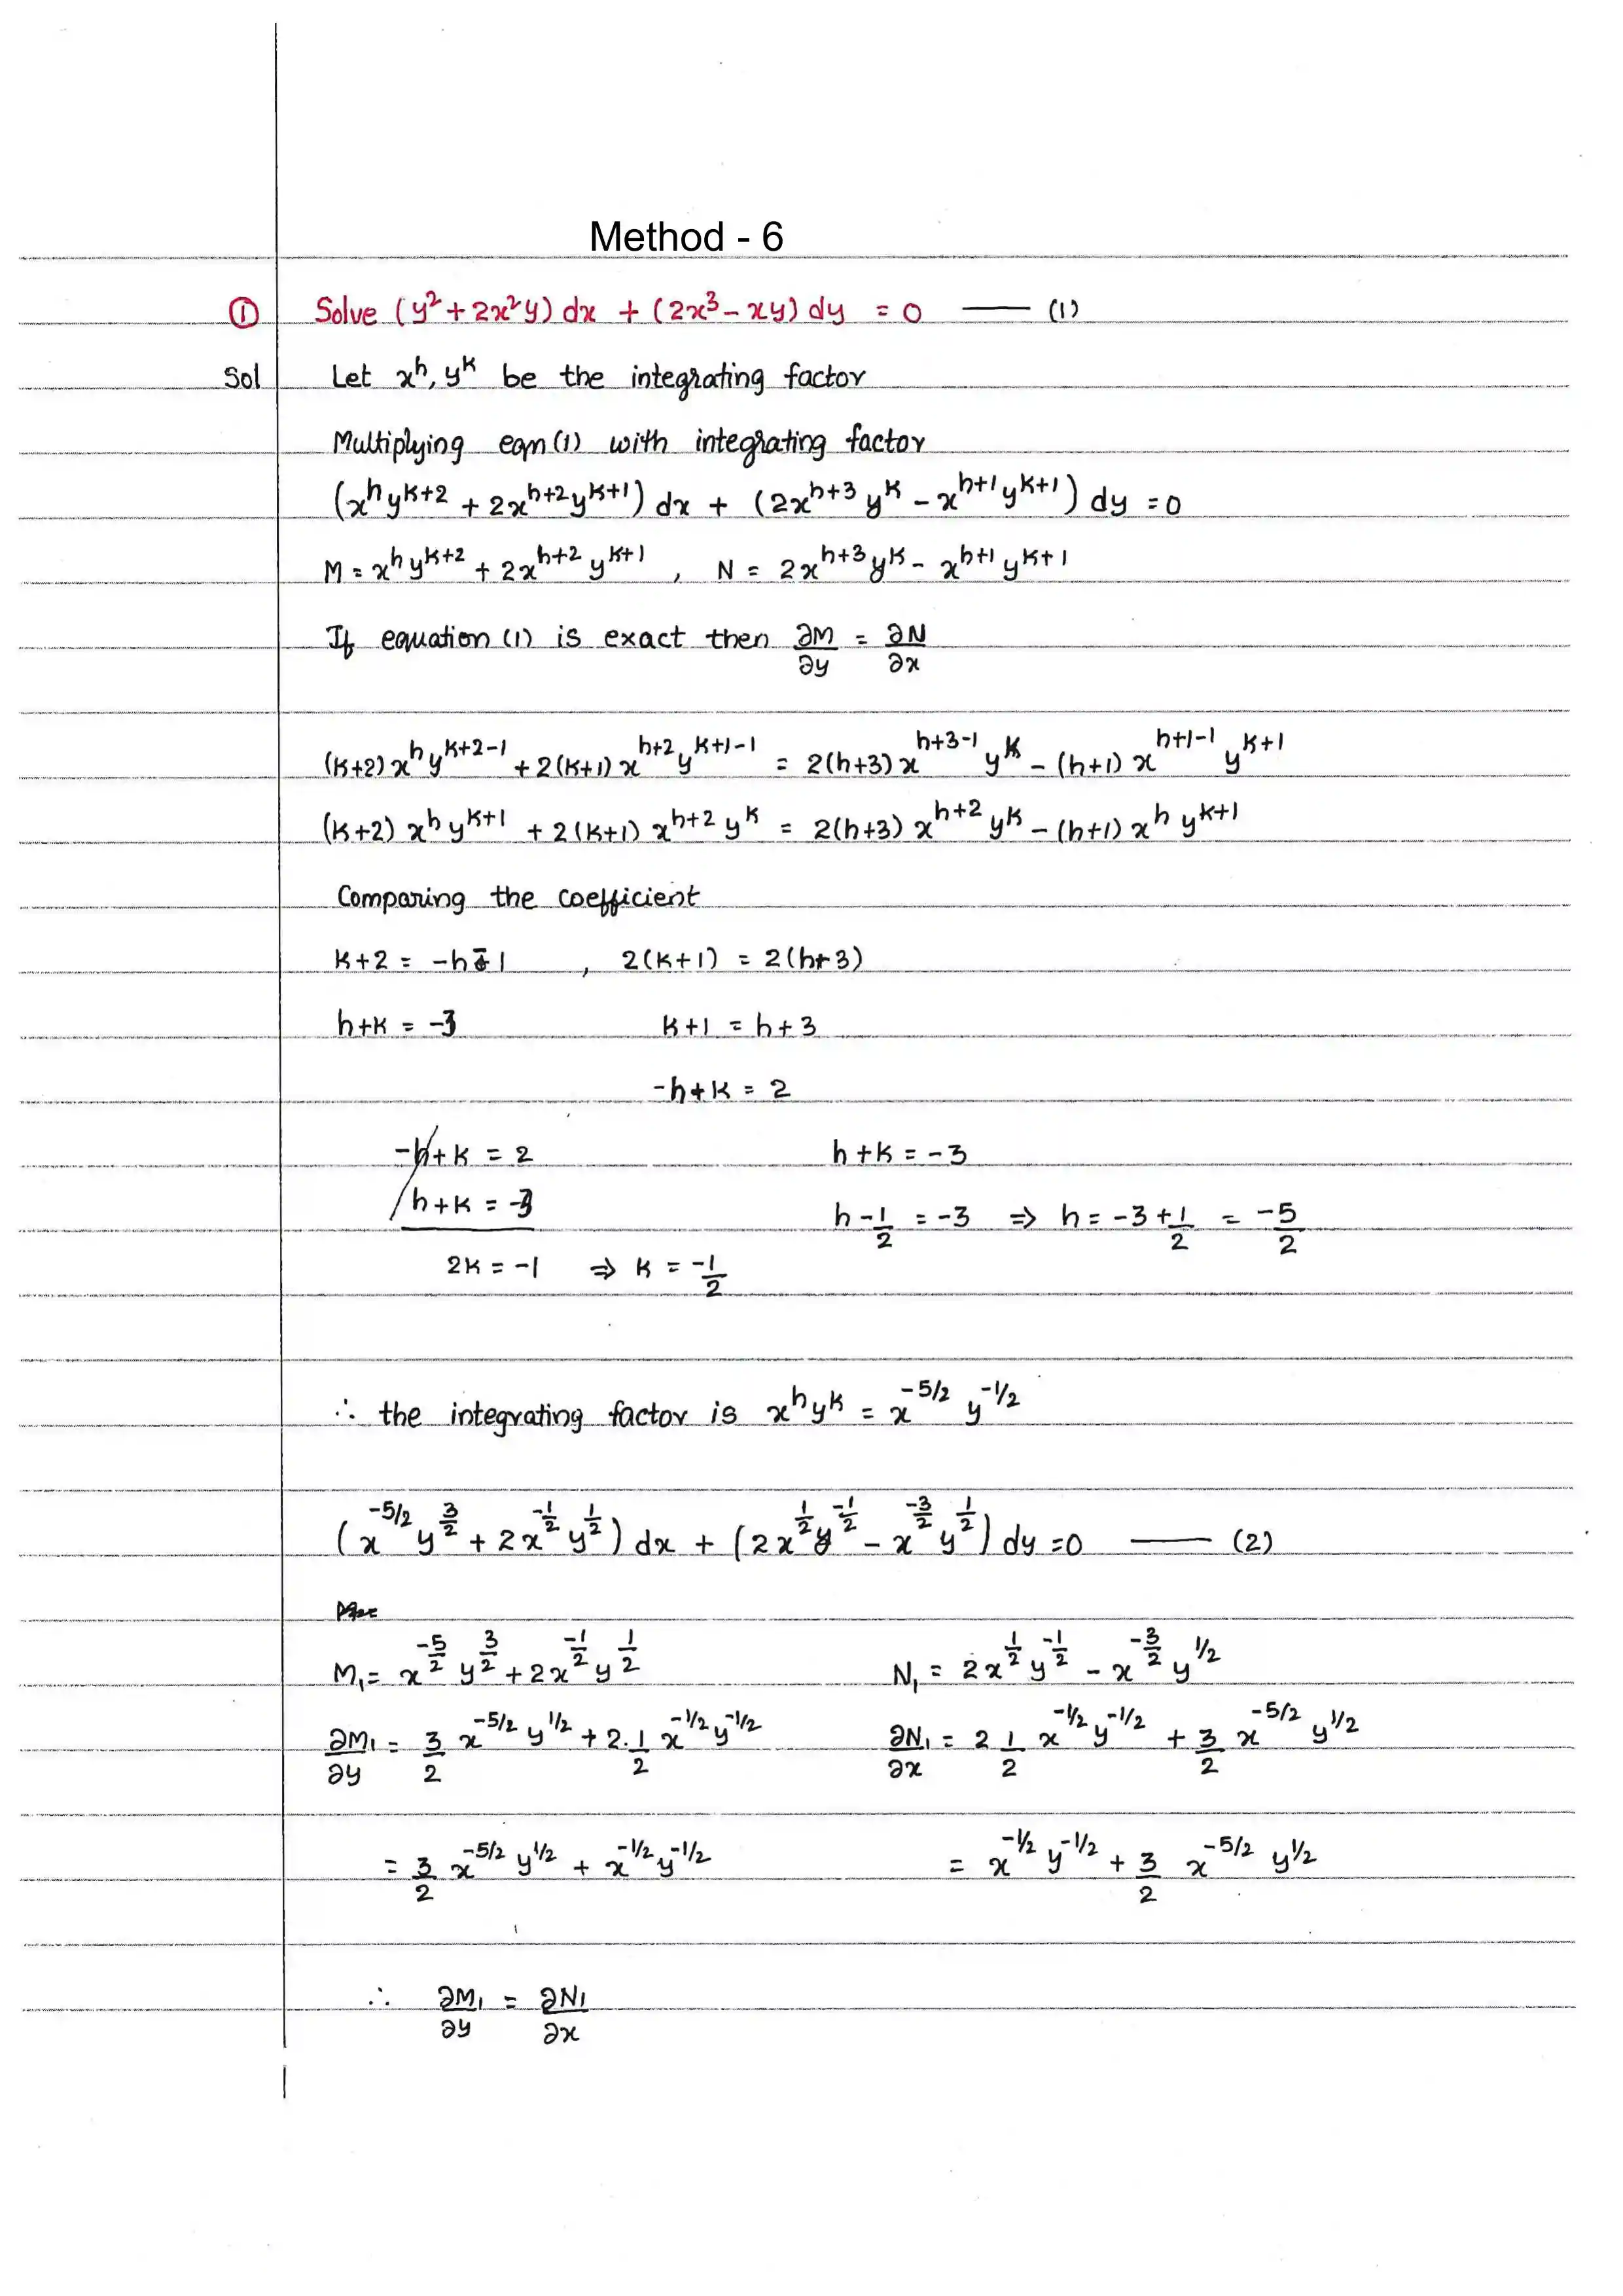 Method - 6
① Solve (y² + 2x²y) dx + (2x³ - xy) dy = 0 —— (1)
Sol Let xʰ, yᵏ be the integrating factor
Multiplying eqn (1) with integrating factor
(x^h y^{k+2} + 2x^{h+2} y^{k+1}) dx + (2x^{h+3} y^k - x^{h+1} y^{k+1}) dy = 0
M = x^h y^{k+2} + 2x^{h+2} y^{k+1} , N = 2x^{h+3} y^k - x^{h+1} y^{k+1}
If equation (1) is exact then ∂M/∂y = ∂N/∂x
(k+2) x^h y^{k+2-1} + 2(k+1) x^{h+2} y^{k+1-1} = 2(h+3) x^{h+3-1} y^k - (h+1) x^{h+1-1} y^{k+1}
(k+2) x^h y^{k+1} + 2(k+1) x^{h+2} y^k = 2(h+3) x^{h+2} y^k - (h+1) x^h y^{k+1}
Comparing the coefficient
k+2 = -h-1 , 2(k+1) = 2(h+3)
h+k = -3 k+1 = h+3
-h+k = 2
-h+k = 2 h+k = -3
h+k = -3 h - 1/2 = -3 ⇒ h = -3 + 1/2 = -5/2
2k = -1 ⇒ k = -1/2
∴ the integrating factor is x^h y^k = x^{-5/2} y^{-1/2}
(x^{-5/2} y^{3/2} + 2x^{-1/2} y^{1/2}) dx + (2x^{1/2} y^{-1/2} - x^{-3/2} y^{1/2}) dy = 0 —— (2)
M₁ = x^{-5/2} y^{3/2} + 2x^{-1/2} y^{1/2} N₁ = 2x^{1/2} y^{-1/2} - x^{-3/2} y^{1/2}
∂M₁/∂y = 3/2 x^{-5/2} y^{1/2} + 2·1/2 x^{-1/2} y^{-1/2} ∂N₁/∂x = 2 1/2 x^{-1/2} y^{-1/2} + 3/2 x^{-5/2} y^{1/2}
= 3/2 x^{-5/2} y^{1/2} + x^{-1/2} y^{-1/2} = x^{-1/2} y^{-1/2} + 3/2 x^{-5/2} y^{1/2}
∴ ∂M₁/∂y = ∂N₁/∂x